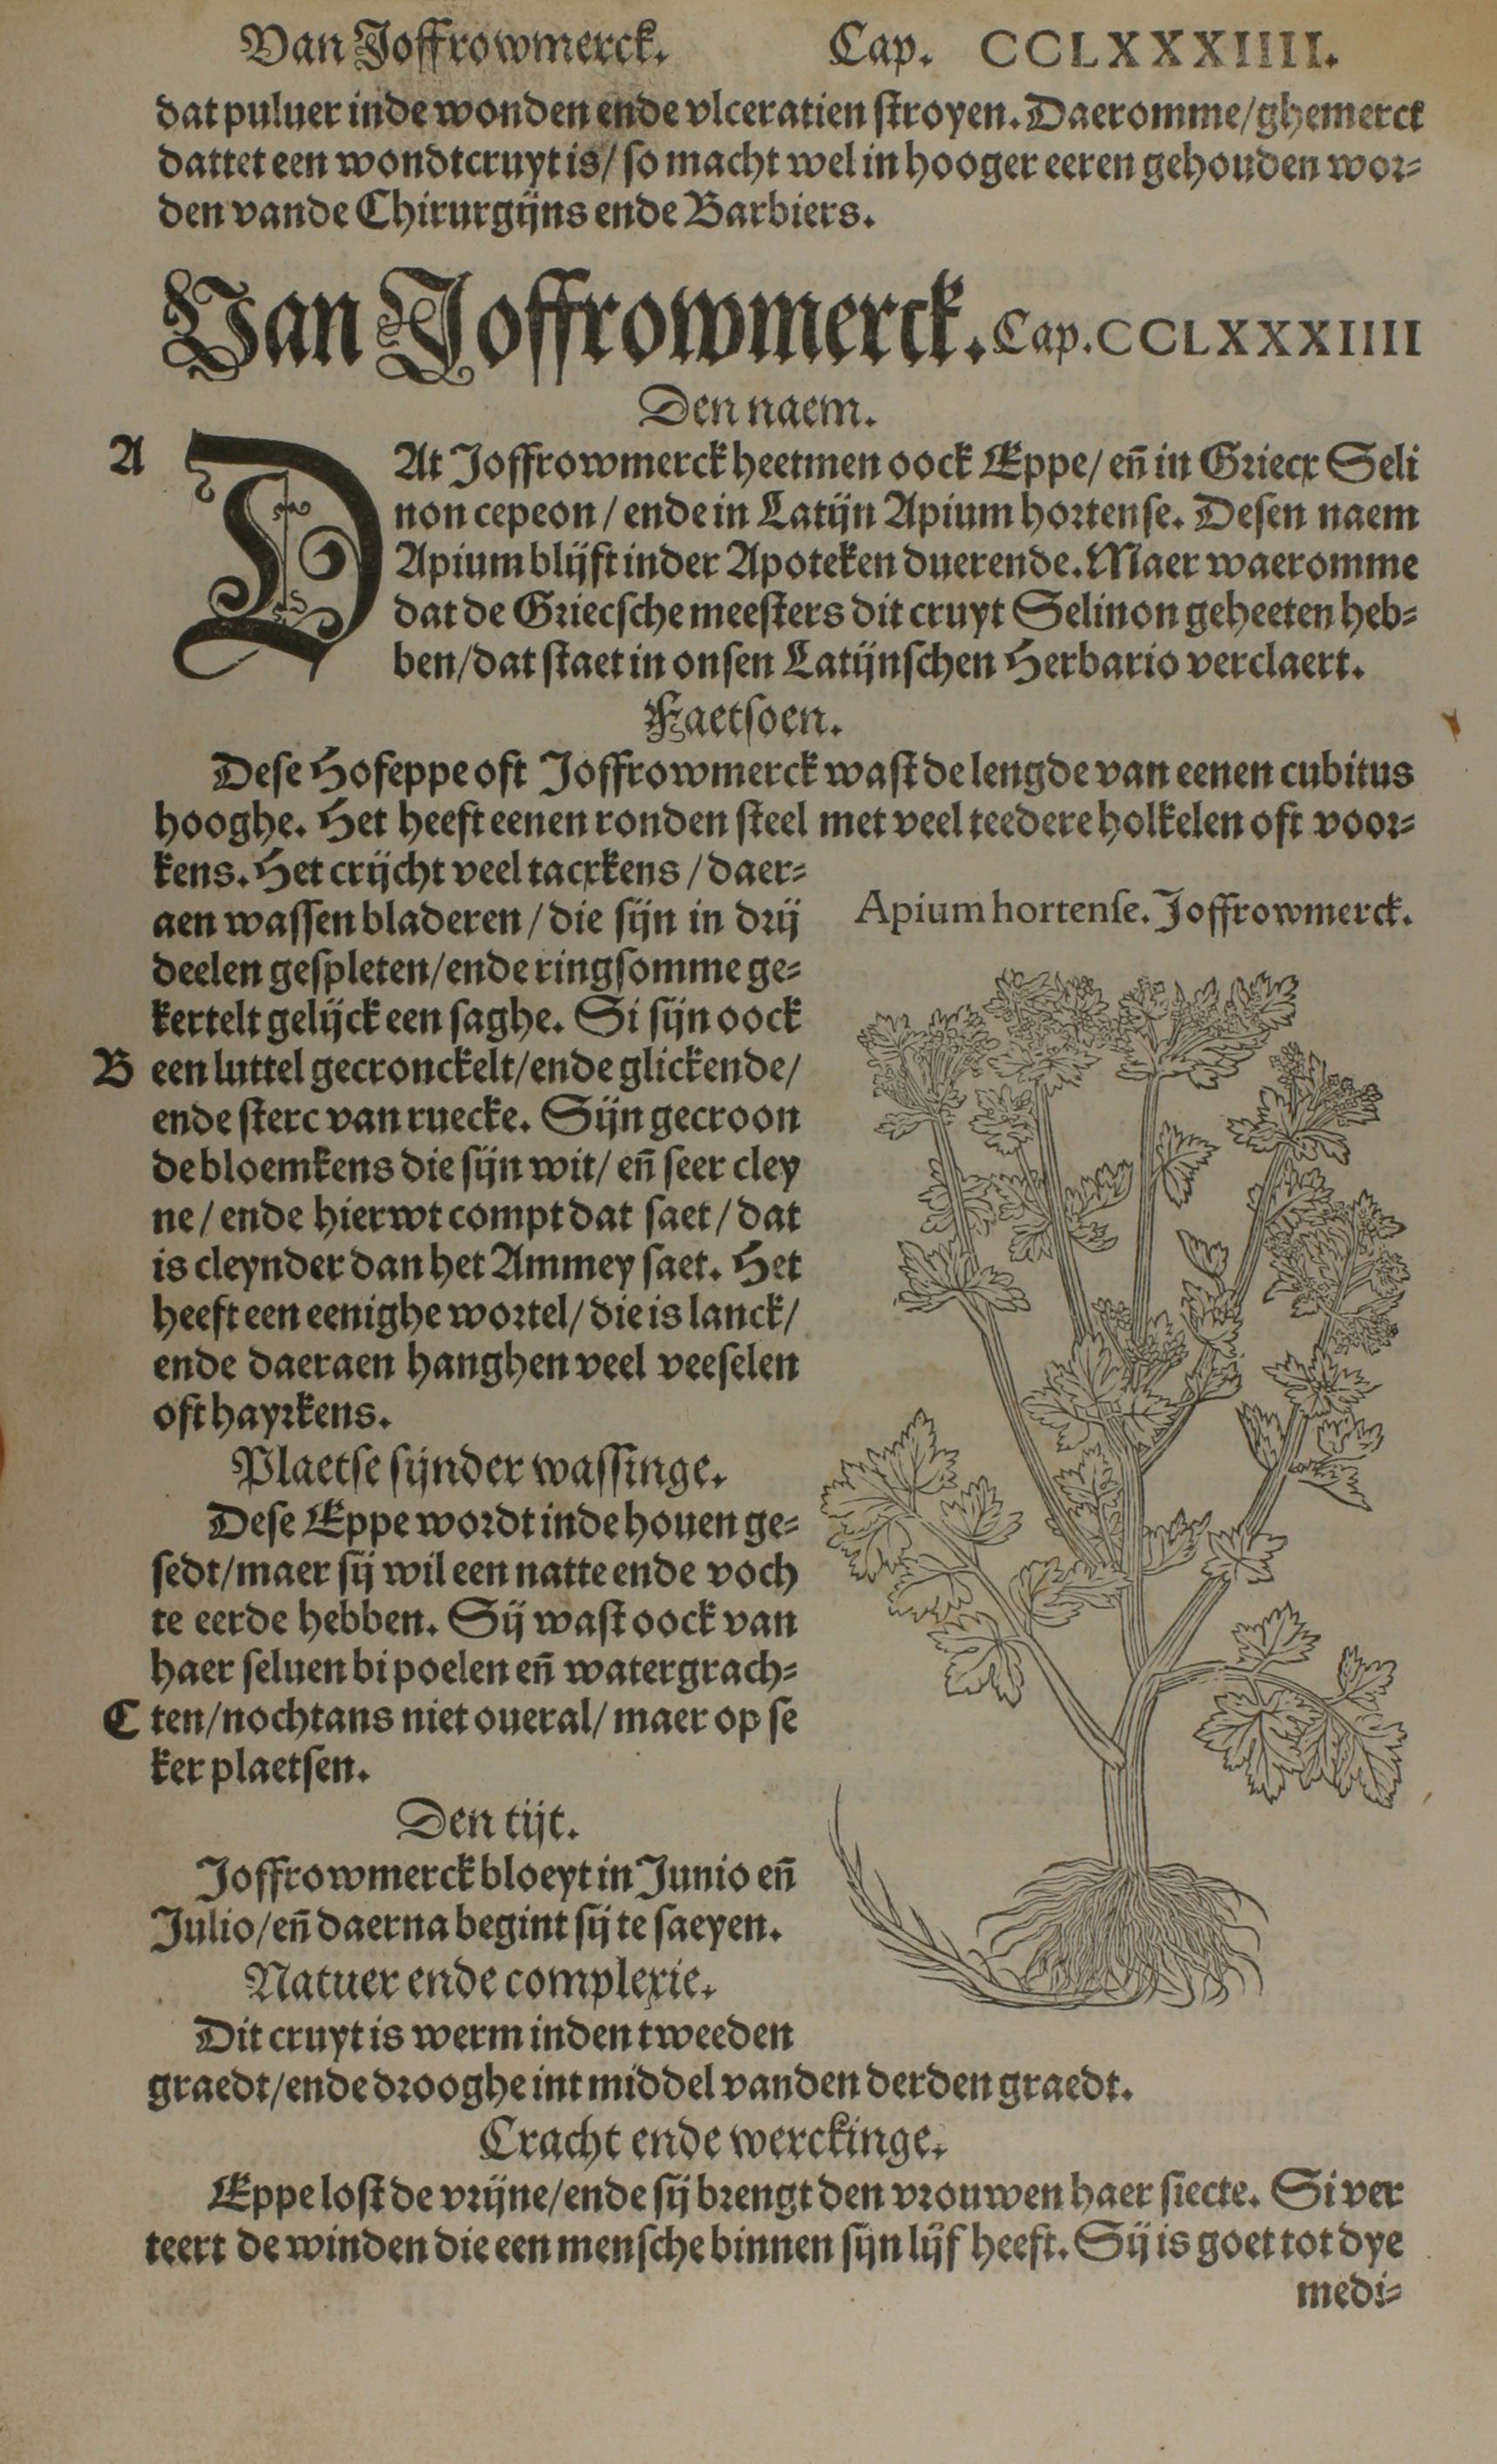 Van Joffrowmerck. Cap. CCLXXXIIII.
dat puluer inde wonden ende vlceratien stroyen. Daeromme/ghemerct
dattet een wondtcruyt is/ so macht wel in hooger eeren gehouden wor-
den vande Chirurgijns ende Barbiers.
Van Joffrowmerck. Cap. CCLXXXIIII
Den naem.
A
DAt Joffrowmerck heetmen oock Eppe/ en̄ in Griecx Seli
non cepeon / ende in Latijn Apium hortense. Desen naem
Apium blijft inder Apoteken duerende. Maer waeromme
dat de Griecsche meesters dit cruyt Selinon geheeten heb-
ben/dat staet in onsen Latijnschen Herbario verclaert.
Faetsoen.
Dese Hofeppe oft Joffrowmerck wast de lengde van eenen cubitus
hooghe. Het heeft eenen ronden steel met veel teedere holkelen oft voor-
kens. Het crijcht veel tacxkens / daer-
aen wassen bladeren / die sijn in drij
deelen gespleten/ende ringsomme ge-
kertelt gelijck een saghe. Si sijn oock
B een luttel gecronckelt/ende glickende/
ende sterc van ruecke. Sijn gecroon
de bloemkens die sijn wit/ en̄ seer cley
ne / ende hierwt compt dat saet / dat
is cleynder dan het Ammey saet. Het
heeft een eenighe wortel/ die is lanck/
ende daeraen hanghen veel veeselen
oft hayrkens.
Apium hortense. Joffrowmerck.
Plaetse sijnder wassinge.
Dese Eppe wordt inde houen ge-
sedt/maer sij wil een natte ende voch
te eerde hebben. Sij wast oock van
haer seluen bi poelen en̄ watergrach-
C ten/nochtans niet oueral/ maer op se
ker plaetsen.
Den tijt.
Joffrowmerck bloeyt in Junio en̄
Julio/en̄ daerna begint sij te saeyen.
Natuer ende complexie.
Dit cruyt is werm inden tweeden
graedt/ende drooghe int middel vanden derden graedt.
Cracht ende werckinge.
Eppe lost de vrijne/ende sij brengt den vrouwen haer siecte. Si ver
teert de winden die een mensche binnen sijn lijf heeft. Sij is goet tot dye
medi-